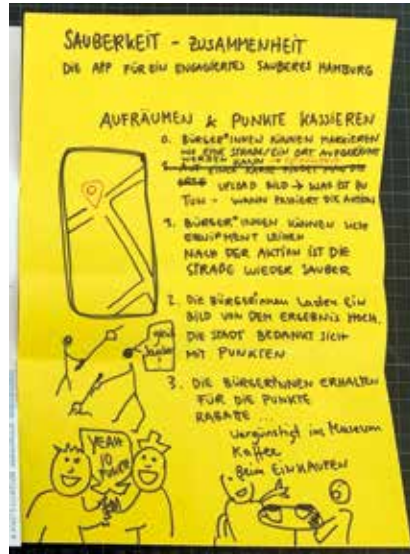 SAUBERKEIT - ZUSAMMENHEIT
DIE APP FÜR EIN ENGAGIERTES SAUBERES HAMBURG
AUFRÄUMEN & PUNKTE KASSIEREN
0. BÜRGER*INNEN KÖNNEN MARKIEREN
WO EINE STRAßE/EIN ORT AUFGERÄUMT
WERDEN KANN →
UPLOAD BILD → WAS IST ZU
TUN - WANN PASSIERT DIE AKTION
1. BÜRGER*INNEN KÖNNEN SICH
EQUIPMENT LEIHEN
NACH DER AKTION IST DIE
STRAßE WIEDER SAUBER
2. Die Bürgerinnen laden ein
BILD VON DEM ERGEBNIS HOCH.
DIE STADT BEDANKT SICH
MIT PUNKTEN
3. DIE BÜRGERINNEN ERHALTEN
FÜR DIE PUNKTE
RABATTE ...
Vergünstigt ins Museum
Kaffee
Beim EINKAUFEN
YEAH
10